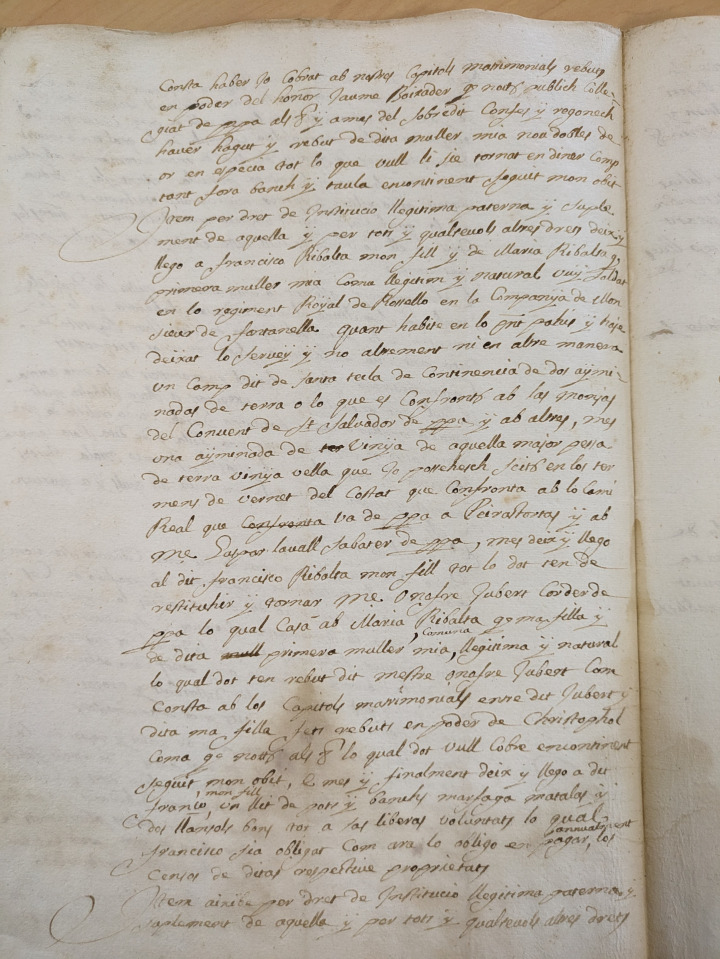 Consta haber Jo Cobrat ab nostres Capitols matrimonials rebuts
en poder del honor Jaume Boixader q° nott publich Colle-
giat de ppa als y a mes del sobredit Confes y regonech
haver hagut y rebut de dita muller mia nou dobles de
or en especia tot lo que vull li sie tornat en diner Comp
tant fora banch ÿ taula encontinent seguit mon obit
Item per dret de Institucio llegitima paterna ÿ suple
ment de aquella ÿ per tots ÿ qualsevols altres drets deix y
llego a francisco Ribalta mon fill ÿ de Maria Ribalta q°
primera muller mia Coma llegitim y natural vuÿ soldat
en lo regiment Roÿal de Rossello en la Companÿa de Mon
sieur de fontanella quant habite en lo pnt pahis y haje
deixat lo serveÿ ÿ no altrement ni en altre manera
un Camp dit de santa tecla de Continencia de dos aÿmi-
nadas de terra o lo que es Confronts ab las monjas
del Convent de St saluador de ppa y ab altres, mes
una aÿminada de ter vinÿa de aquella major pessa
de terra vinÿa vella que Jo posehesch scits en los ter
mens de vernet del Costat que Confronta ab lo Cami
Real que Confronta va de ppa a Peirastortas ÿ ab
Me Gaspar lavall sabater de ppa, mes deix ÿ llego
al dit francisco Ribalta mon fill tot lo dot ten de
restituhir y tornar Me Onofre Jubert Corder de
ppa lo qual Casà ab Maria Ribalta q° ma filla y
de dita mull primera muller mia, Comuna, llegitima ÿ natural
lo qual dot ten rebut dit mestre onofre Jubert Com
Consta ab los Capitols matrimonials entre dit Jubert y
dita ma filla fets rebuts en poder de Christophol
Coma q° notts als lo qual dot vull Cobre encontinent
seguit mon obit, E mes y finalment deix y llego a dit
franco, mon fill un llit de pots ÿ banchs marfaga matalas ÿ
dos llansols bons tot a sas liberas voluntats lo qual
francisco sia obligat Com ara lo obligo en pagar, annualment los
Censos de ditas respective proprietats
Item aixibe per dret de Institucio llegitima paterna y
suplement de aquella ÿ per tots ÿ qualsevols altres drets